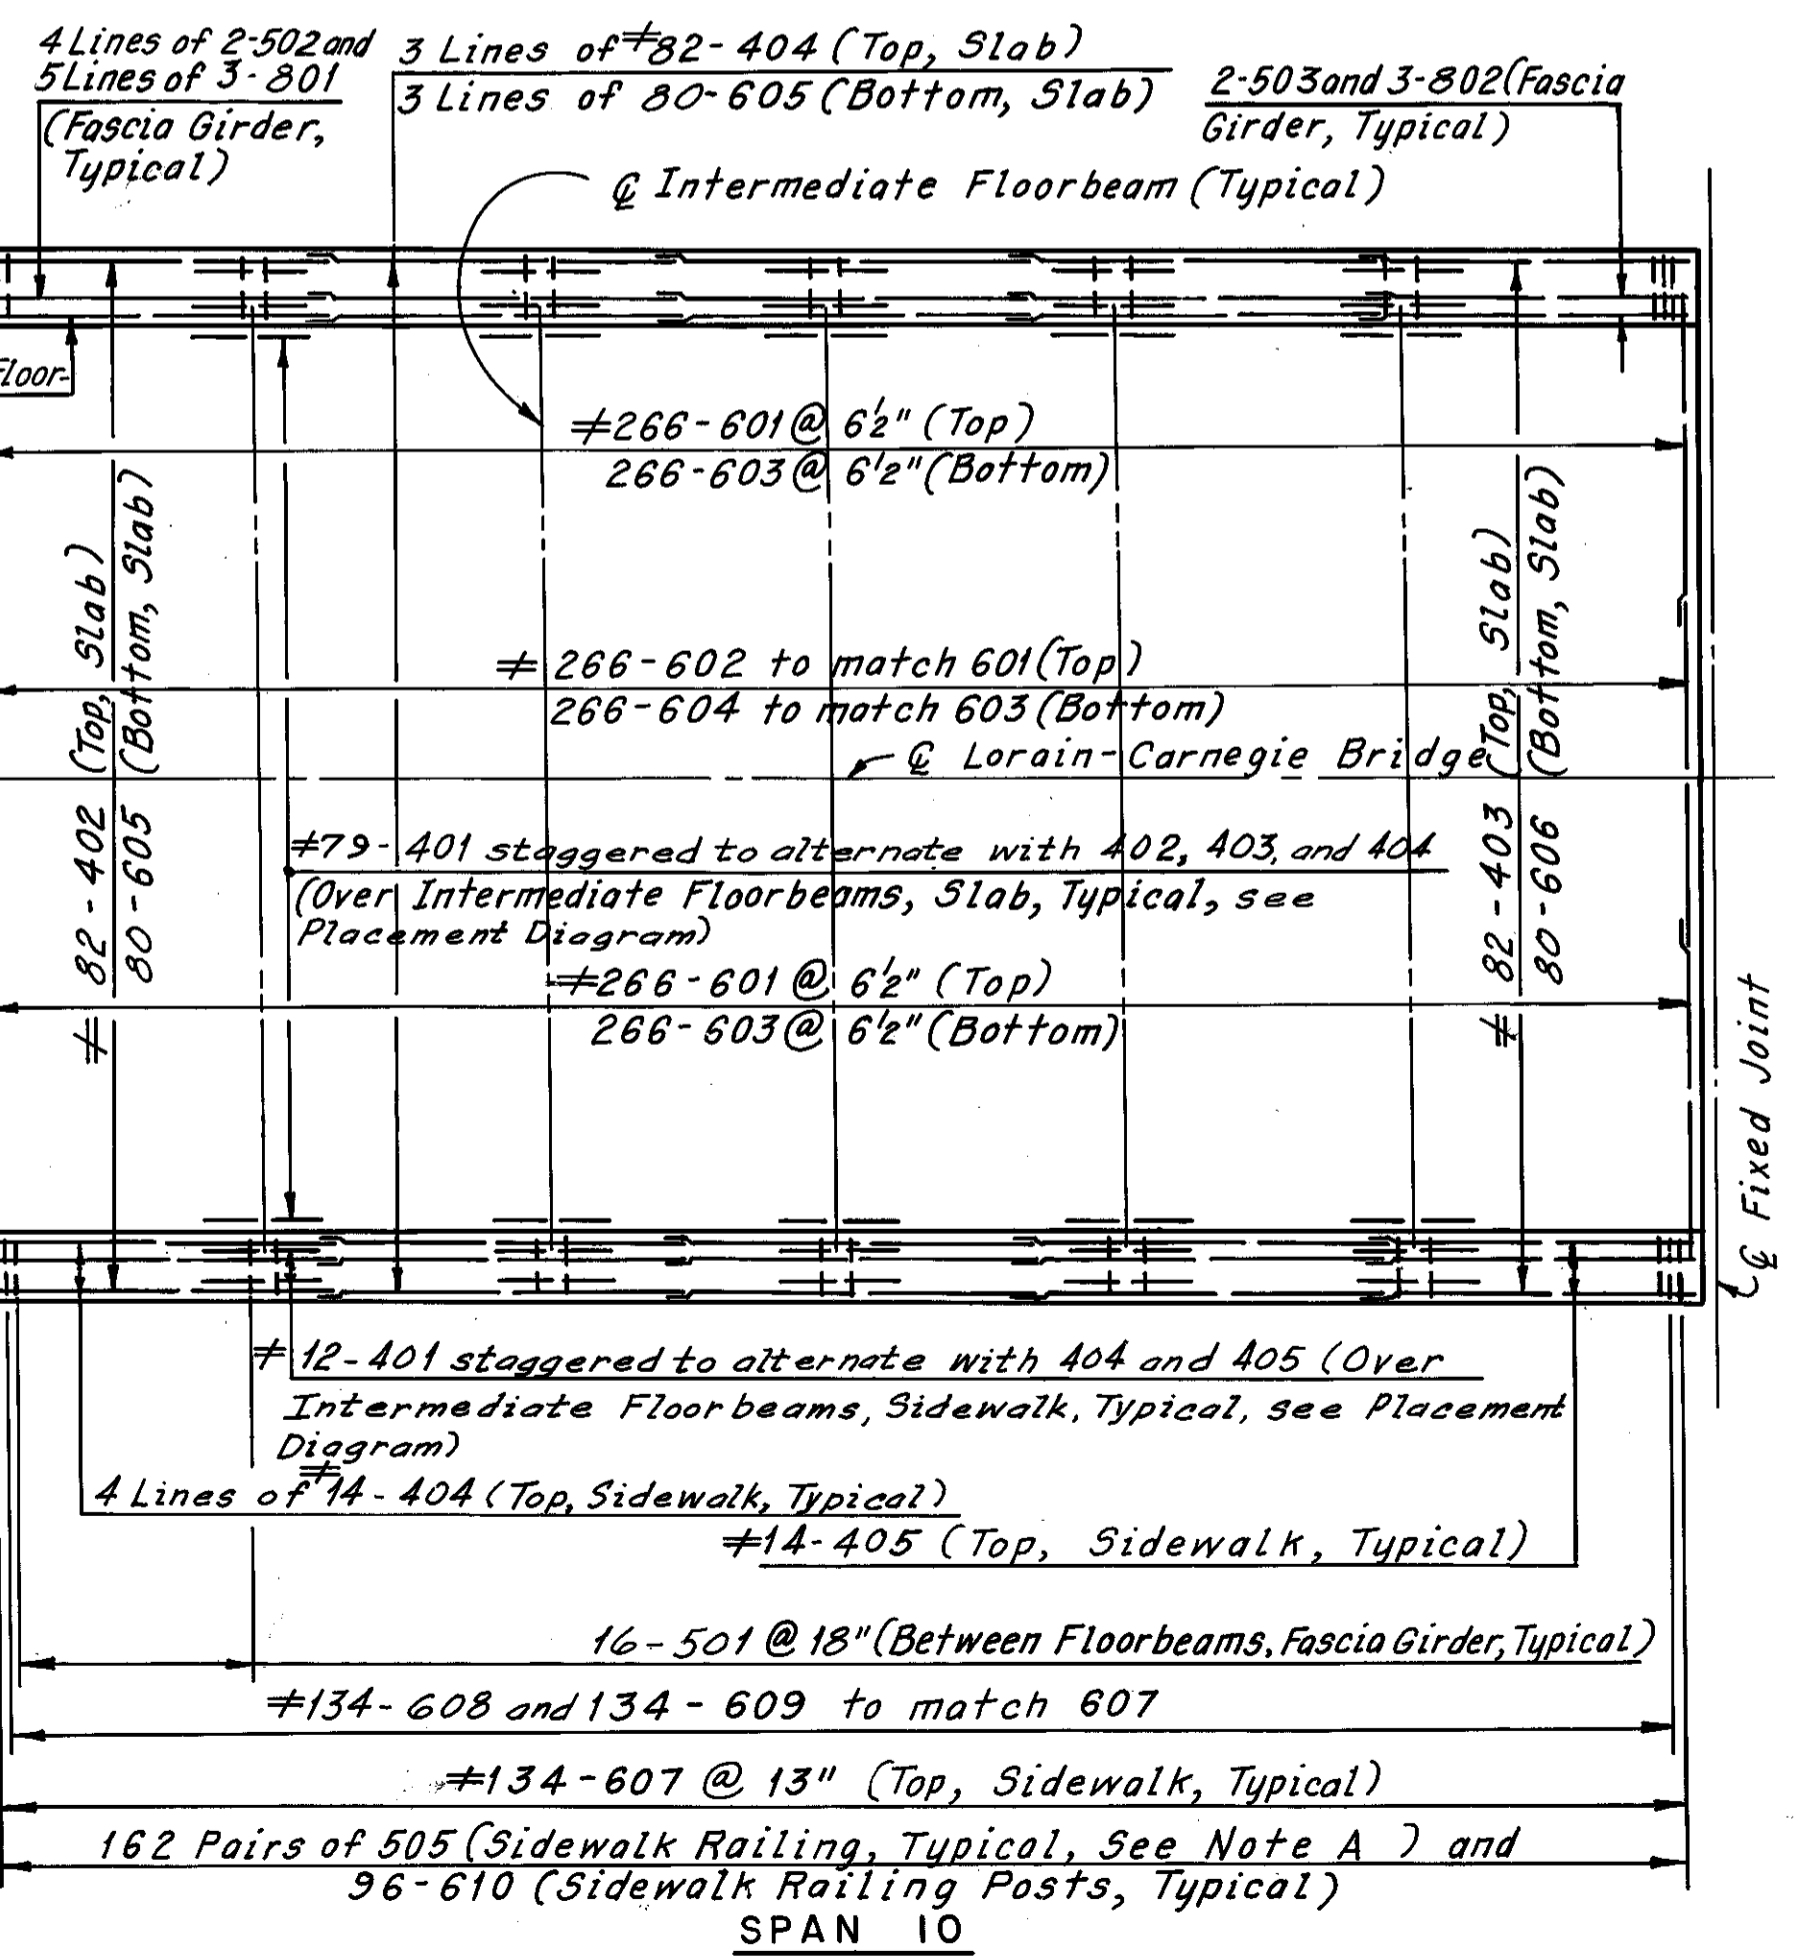 4 Lines of 2-502 and
5 Lines of 3-801
(Fascia Girder,
Typical)
3 Lines of ≠82-404 (Top, Slab)
3 Lines of 80-605 (Bottom, Slab)
2-503 and 3-802 (Fascia
Girder, Typical)
℄ Intermediate Floorbeam (Typical)
Floor-
≠266-601 @ 6½" (Top)
266-603 @ 6½" (Bottom)
≠ 82-402 (Top, Slab)
80-605 (Bottom, Slab)
≠ 266-602 to match 601 (Top)
266-604 to match 603 (Bottom)
℄ Lorain-Carnegie Bridge
≠ 82-403 (Top, Slab)
80-606 (Bottom, Slab)
≠79-401 staggered to alternate with 402, 403, and 404
(Over Intermediate Floorbeams, Slab, Typical, see
Placement Diagram)
≠266-601 @ 6½" (Top)
266-603 @ 6½" (Bottom)
℄ Fixed Joint
≠ 12-401 staggered to alternate with 404 and 405 (Over
Intermediate Floorbeams, Sidewalk, Typical, see Placement
Diagram)
4 Lines of ≠14-404 (Top, Sidewalk, Typical)
≠14-405 (Top, Sidewalk, Typical)
16-501 @ 18" (Between Floorbeams, Fascia Girder, Typical)
≠134-608 and 134-609 to match 607
≠134-607 @ 13" (Top, Sidewalk, Typical)
162 Pairs of 505 (Sidewalk Railing, Typical, See Note A ) and
96-610 (Sidewalk Railing Posts, Typical)
SPAN 10